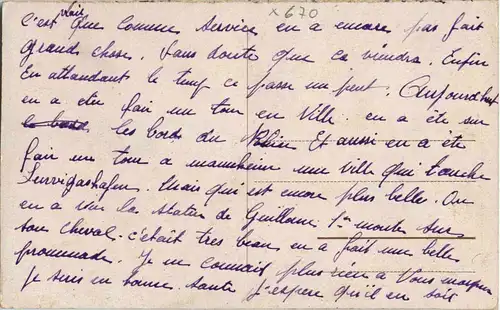 x 670
vlait
c'est que comme service en a encore pas fait
grands chose. Sans doute que ca viendra. Enfin
En attendant le temp ce passe un peut. Aujourd'hui
en a eter fair un tour en Ville. en a éte sur
les bords du Rhin Et aussi en a éte
fair un tour a mannheim une ville qui touche
Luvigashafen. Mais qui est encore plus belles. On
en a voir la statue de Guillaume 1er monter sur
son cheval. c'était tres beau en a fait une belle
promenade. Je ne connait plus rien a Vous marquer
Je suis en bonne santé J'espere qu'il en soit